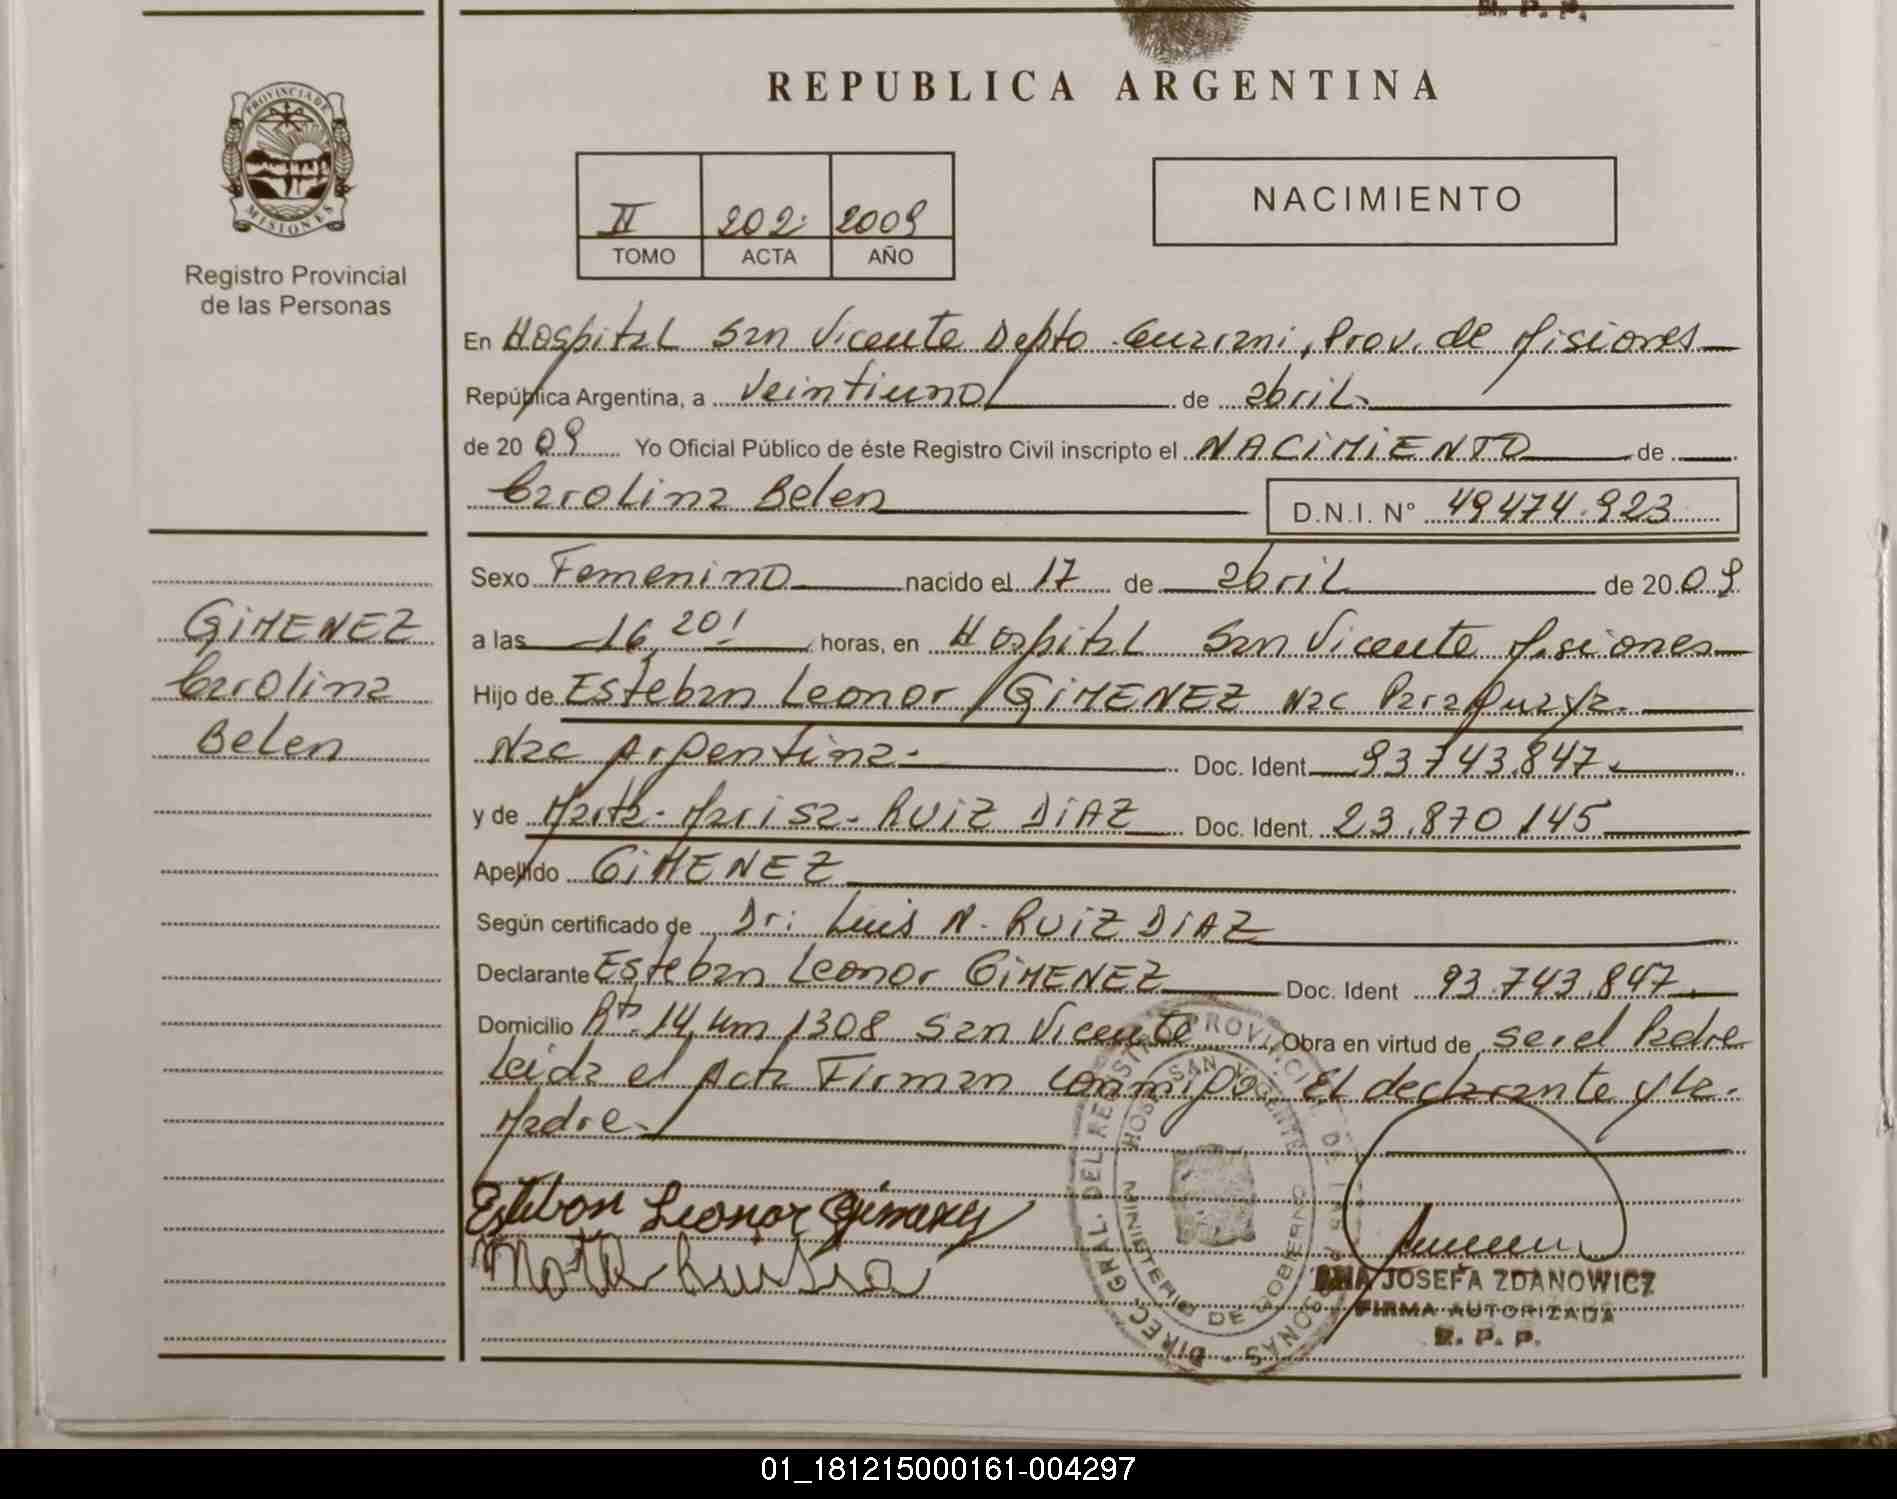 R. P. P.
REPUBLICA ARGENTINA
PROVINCIA DE
MISIONES
Registro Provincial
de las Personas
II 202 2009
TOMO ACTA AÑO
NACIMIENTO
En Hospital San Vicente Depto Guarani, Prov. de Misiones
República Argentina, a veintiuno de abril
de 2009 Yo Oficial Público de éste Registro Civil inscripto el NACIMIENTO de
Carolina Belen D.N.I. N° 49.474.923
Sexo Femenino nacido el 17 de abril de 2009
a las 16,20' horas, en Hospital San Vicente Misiones
Hijo de Esteban Leonor GIMENEZ Nac Paraguaya.
Nac Argentina. Doc. Ident. 93.743.847.
y de Marta Marisa RUIZ DIAZ Doc. Ident. 23.870.145
Apellido GIMENEZ
Según certificado de Dr: Luis N. RUIZ DIAZ
Declarante Esteban Leonor GIMENEZ Doc. Ident 93.743.847.
Domicilio Rta. 14, Km 1308 San Vicente Obra en virtud de ser el Padre
Leida el Acta Firman conmigo El declarante y la
Madre.
GIMENEZ
Carolina
Belen
Esteban Leonor Gimenez
DIREC. GRAL. DEL REGISTRO PROVINCIAL DE LAS PERSONAS
HOSP. SAN VICENTE
MINISTERIO DE GOBIERNO
ANA JOSEFA ZDANOWICZ
FIRMA AUTORIZADA
R. P. P.
01_181215000161-004297